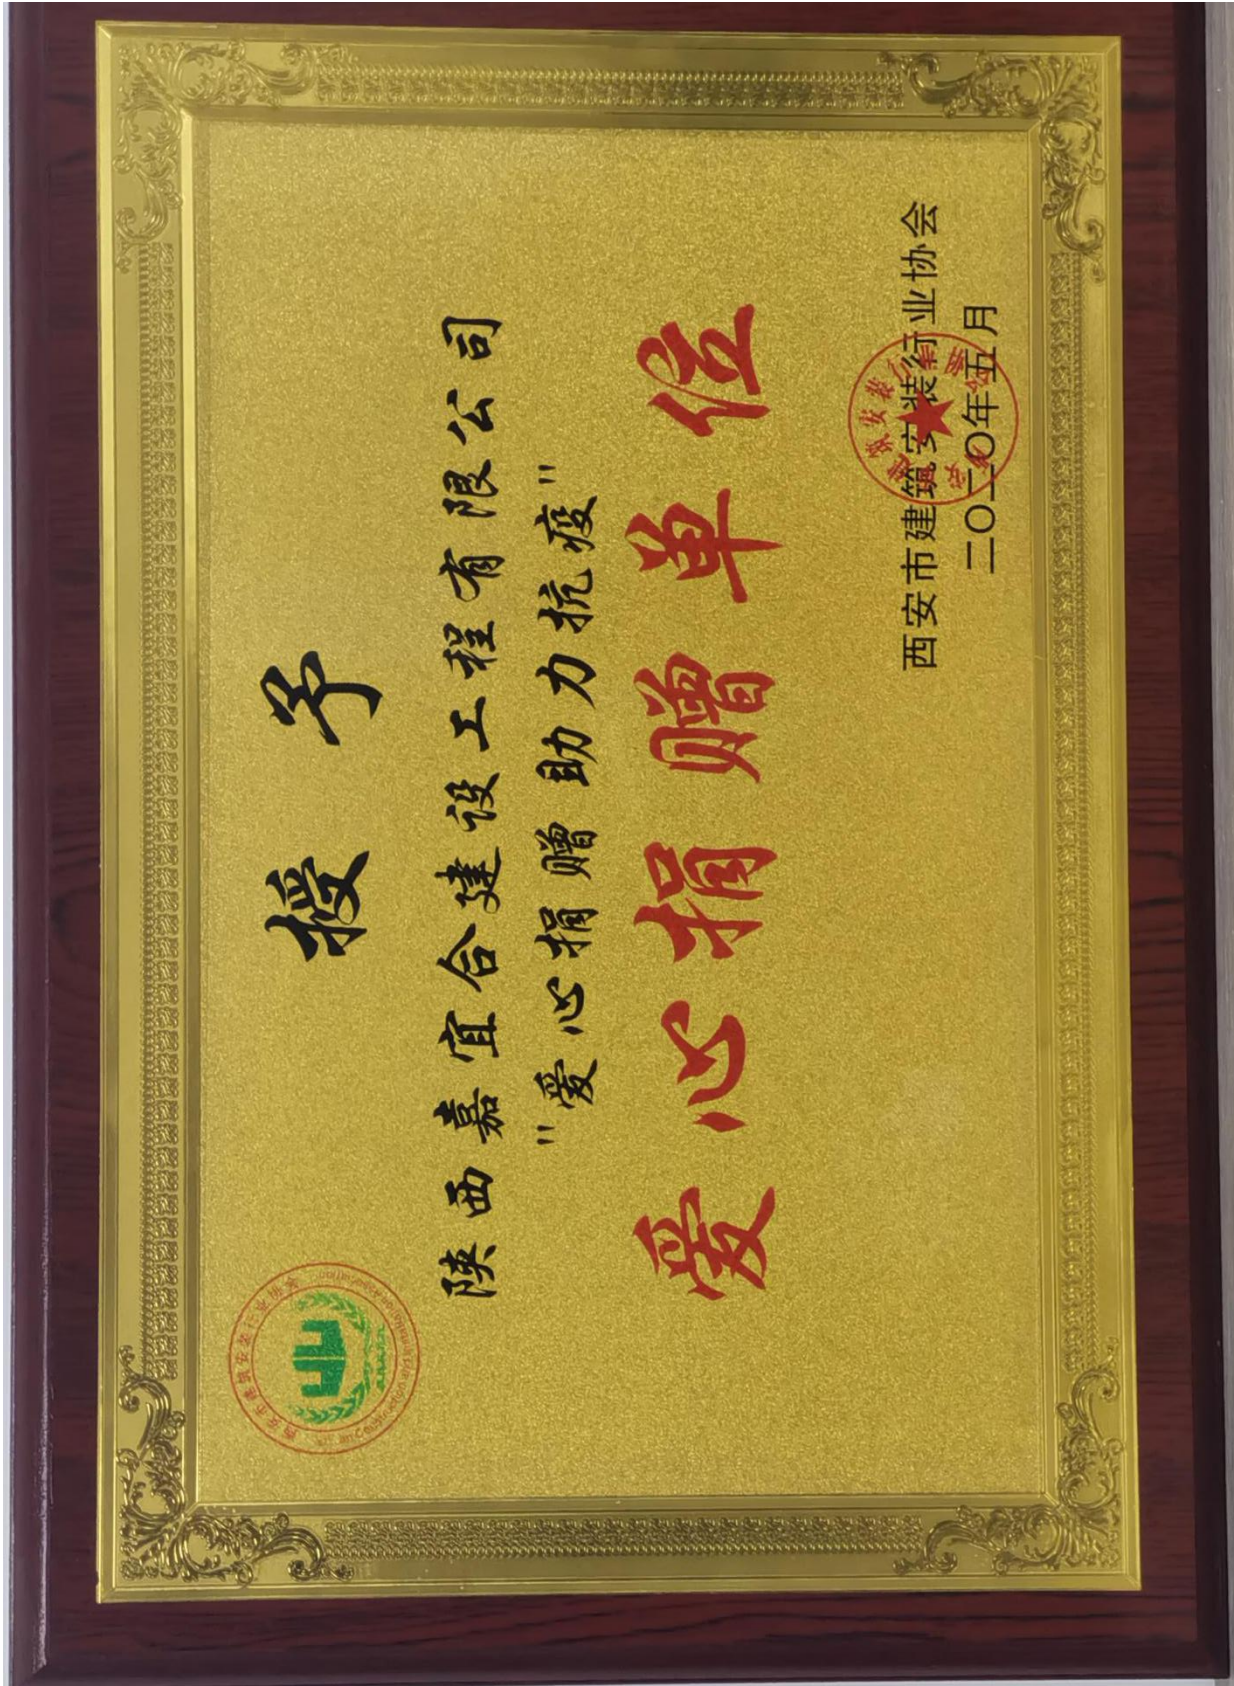 西安市建筑安装行业协会
授予
陕西嘉宜合建设工程有限公司
"爱心捐赠助力抗疫"
爱心捐赠单位
西安市建筑安装行业协会
二〇二〇年五月